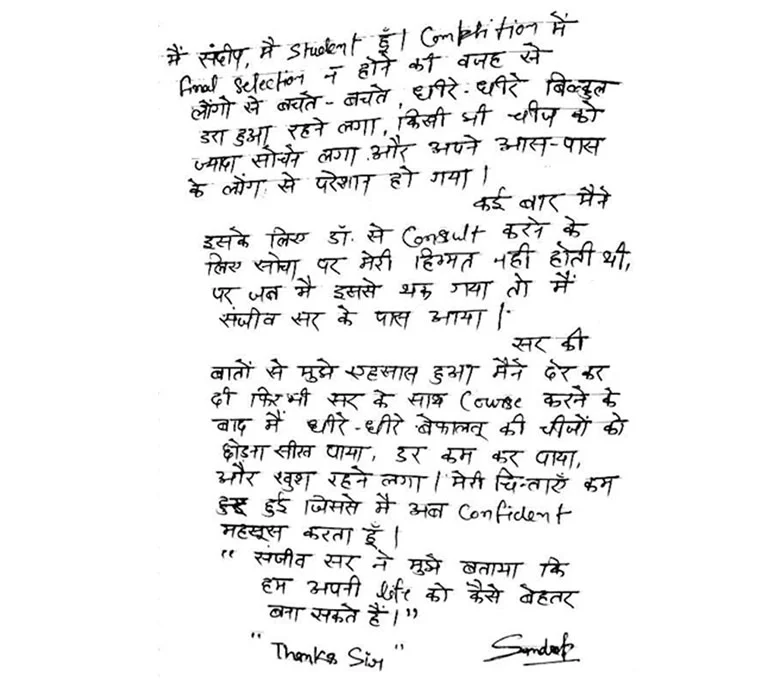 मैं संदीप, मै student हूँ। Comptition में
final selection न होने की वजह से
लौंगो से बचते-बचते, धीरे-धीरे बिल्कुल
डरा हुआ रहने लगा, किसी भी चीज को
ज्यादा सोचने लगा और अपने आस-पास
के लोंग से परेशान हो गया।
कई बार मैने
इसके लिए डॉ. से Consult करने के
लिए सोचा पर मेरी हिम्मत नही होती थी,
पर जब मै इससे थक गया तो मैं
संजीव सर के पास आया।
सर की
बातों से मुझे एहसास हुआ मैने देर कर
दी फिर भी सर के साथ Course करने के
बाद मैं धीरे-धीरे बेफालतू की चीजों को
छोड़ना सीख पाया, डर कम कर पाया,
और खुश रहने लगा। मेरी चिन्ताएँ कम
हुई जिससे मै अब Confident
महसूस करता हूँ।
“ संजीव सर ने मुझे बताया कि
हम अपनी life को कैसे बेहतर
बना सकते हैं।”
“ Thanks Sir ” Sandeep